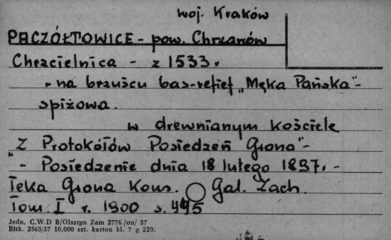 woj. Kraków
PACZÓŁTOWICE - pow. Chrzanów
Chrzcielnica - z 1533r.
- na brzuścu bas-relief „Męka Pańska" -
spiżowa.
w drewnianym kościele
„Z Protokołów Posiedzeń Grona" -
- Posiedzenie dnia 18 lutego 1897. -
Teka Grona Kons. Gal. Zach.
Tom. I r. 1900 s. 445
Jedn. C.W.D B/Olsztyn Zam 2776/on/57
Bltk. 2563/57 10.000 szt. karton kl. 7 g 220.